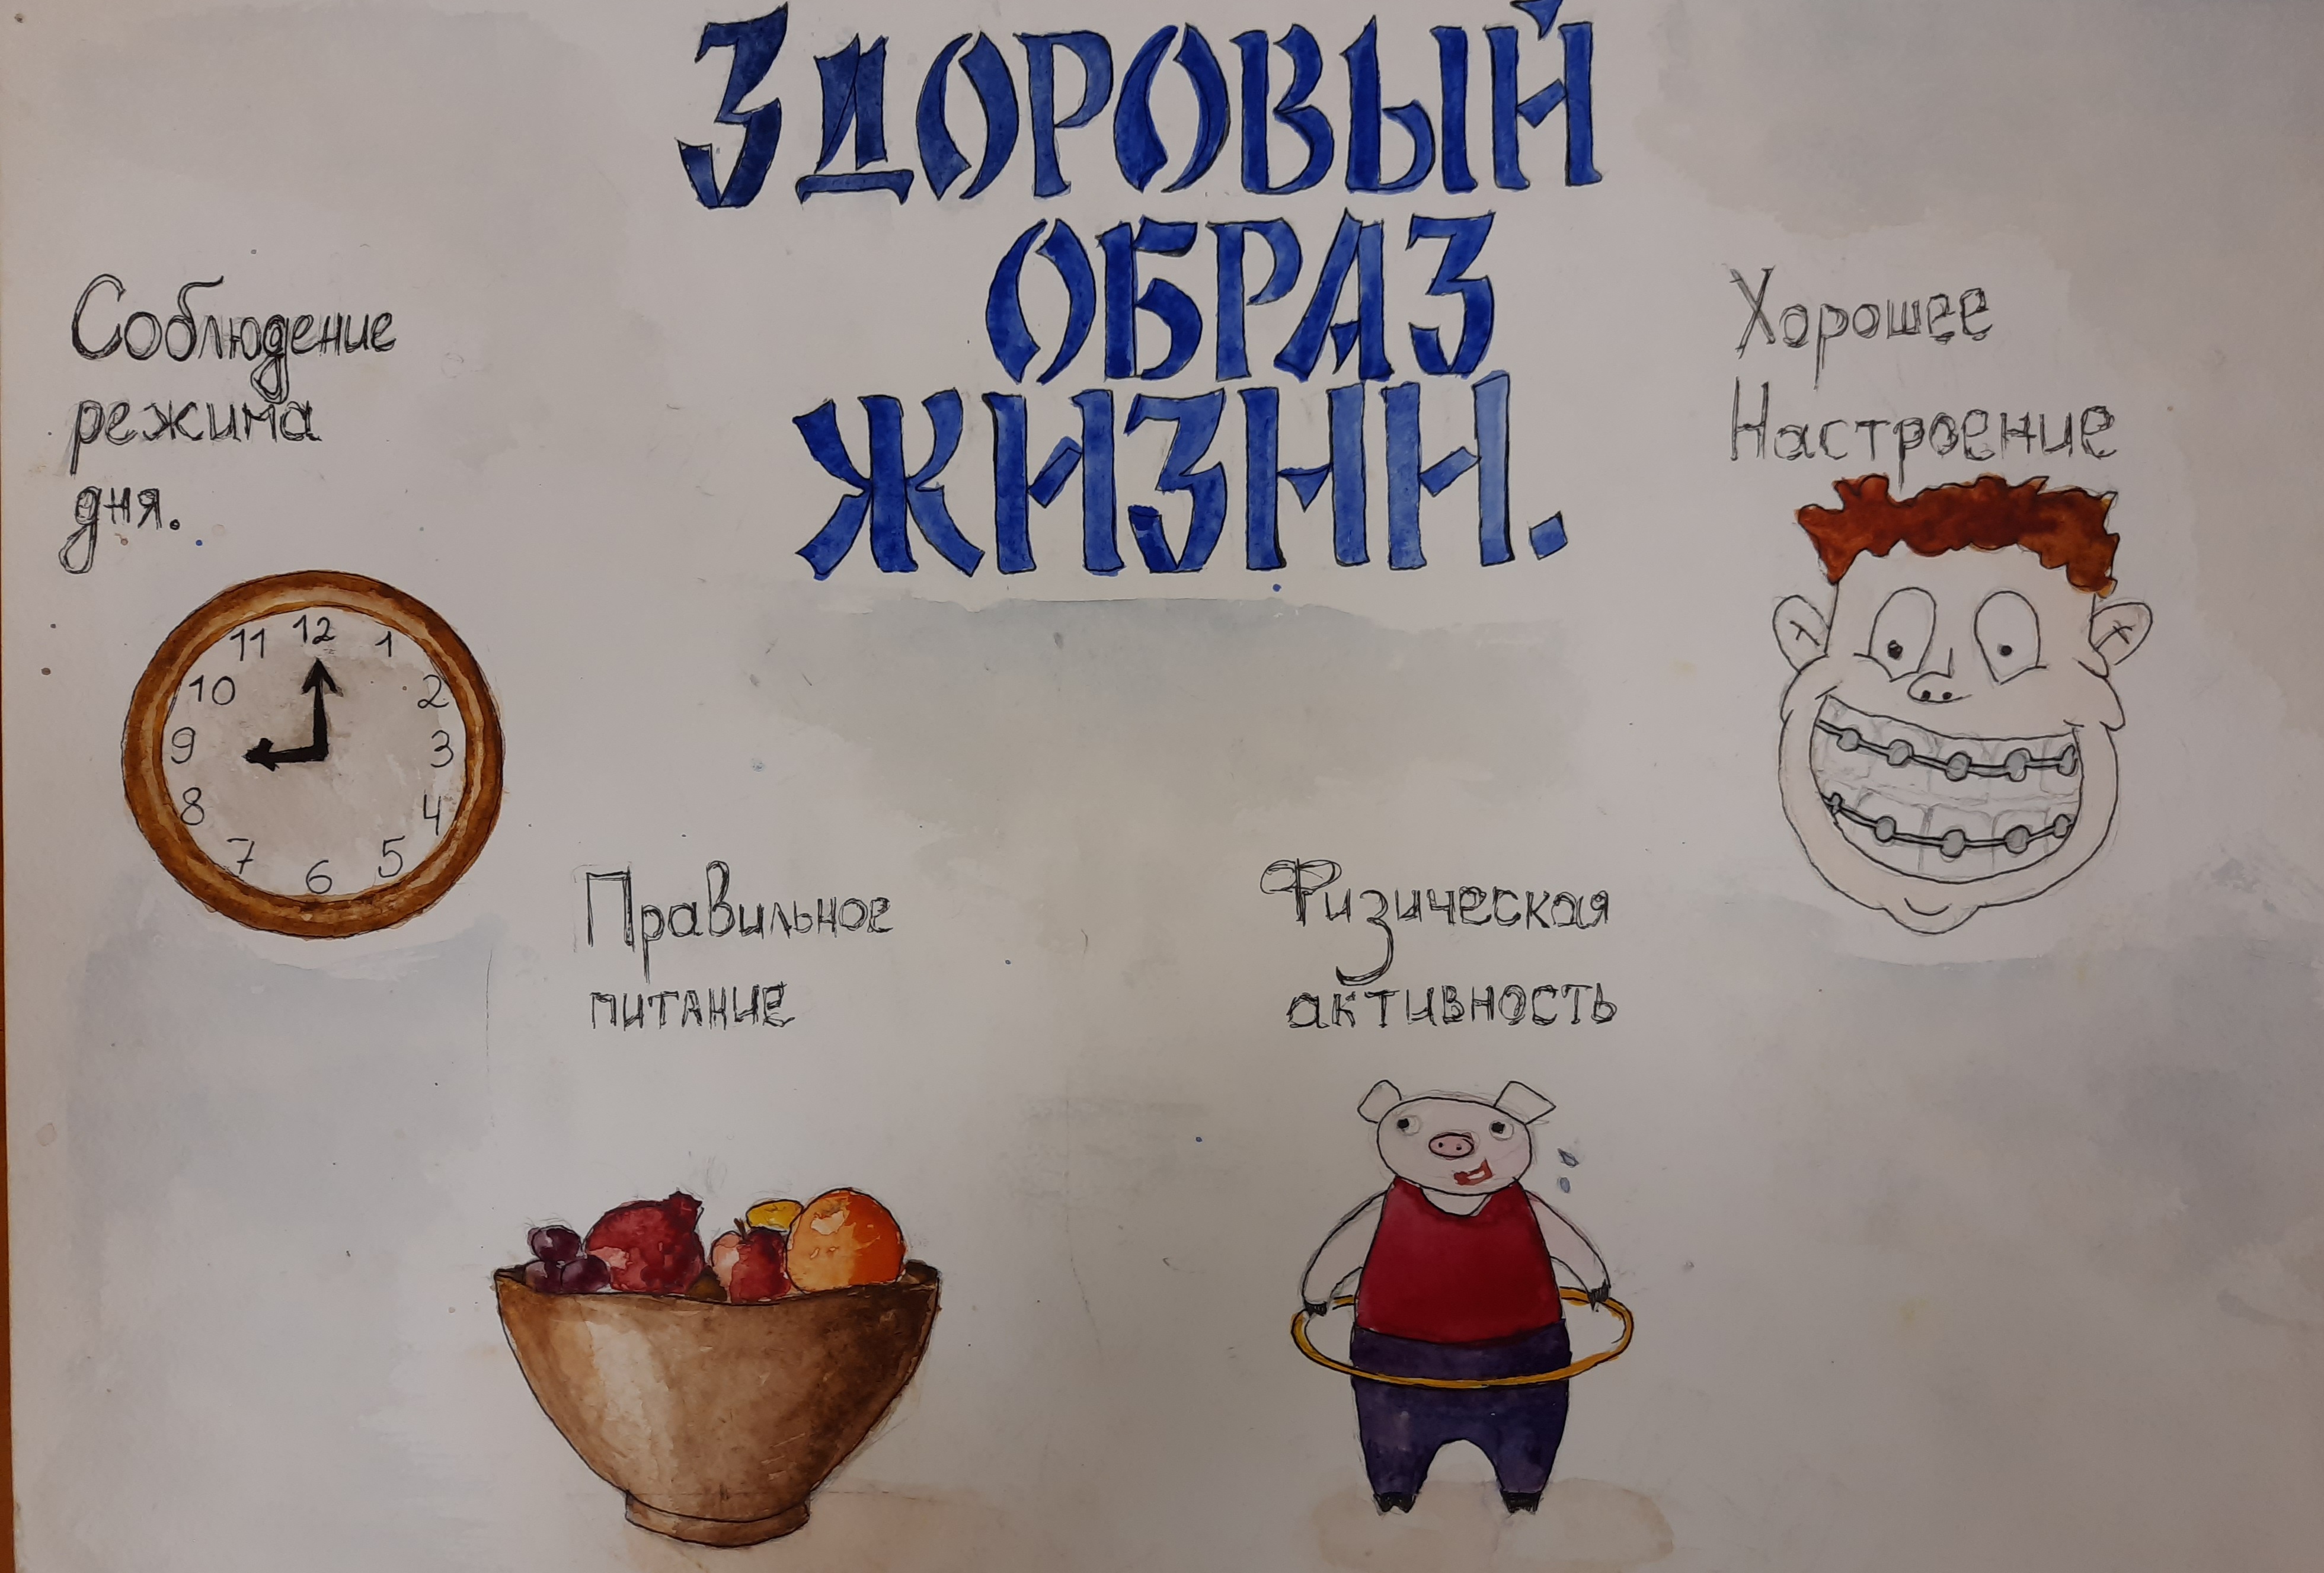 Здоровый
образ
жизни.
Соблюдение
режима
дня.
Хорошее
Настроение
11 12 1
10 2
9 3
8 4
7 6 5
Правильное
питание
Физическая
активность